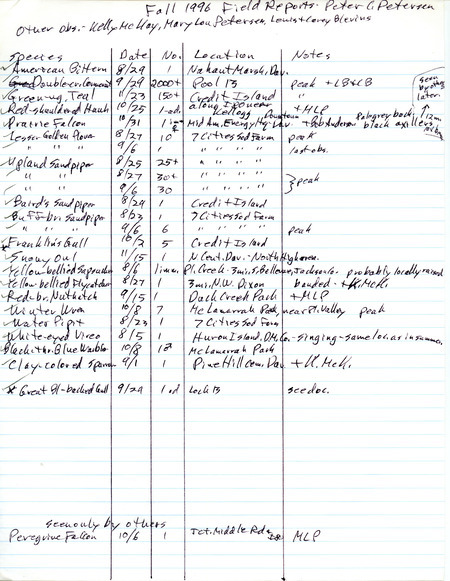 Fall 1996 Field Reports - Peter C. Petersen
Other obs.- Kelly McKay, Mary Lou Petersen, Lewis & Corey Blevins
Species Date No. Location Notes
American Bittern 8/29 1 Nahant Marsh, Dav.
Double-cr. Cormorant 9/29 2000+ Pool 13 peak + LB & CB
Green-wg. Teal 11/23 150+ Credit Island
Red-shouldered Hawk 10/25 1-ad. along
Prairie Falcon 10/31 1 Mid Am. Energy, black axillars
Lesser Golden Plover 8/27 10 7 Cities Sod Farm peak
" " 9/6 1 " " " " last obs.
Upland Sandpiper 8/25 25+ " " " "
" " 8/27 30+ " " " "
" " 9/6 30 " " " " peak
Baird's Sandpiper 8/24 1 Credit Island
Buff-br. Sandpiper 8/23 1 7 Cities Sod Farm
" " 9/6 6 " " " " peak
Franklin's Gull 10/2 5 Credit Island
Snowy Owl 11/15 1 N. Cent. Dav. - North High area
Yellow-bellied Sapsucker 8/6 1 imm. Pl. Creek - 3mi. S. Bellevue, Jackson Co. probably locally raised
Yellow-bellied Flycatcher 8/27 1 3mi. N.W. Dixon banded - + K. McK.
Red-br. Nuthatch 9/15 1 Duck Creek Park + MLP
Winter Wren 10/8 7 McClanarrah Park, near Pl. Valley peak
Water Pipit 8/23 1 7 Cities Sod Farm
White-eyed Vireo 8/5 1 Huron Island, D.M. Co. - singing - same loc. as in summer
Black-thr. Blue Warbler 10/8 1♂ McClanarrah Park
Clay-colored Sparrow 9/1 1 Pine Hill Cem., Dav. + K. McK.
* Great Bl-backed Gull 9/29 1 ad Lock 13 see doc.
seen only by others
Peregrine Falcon 10/6 1 Jct. Middle Rd. MLP
seen by others later